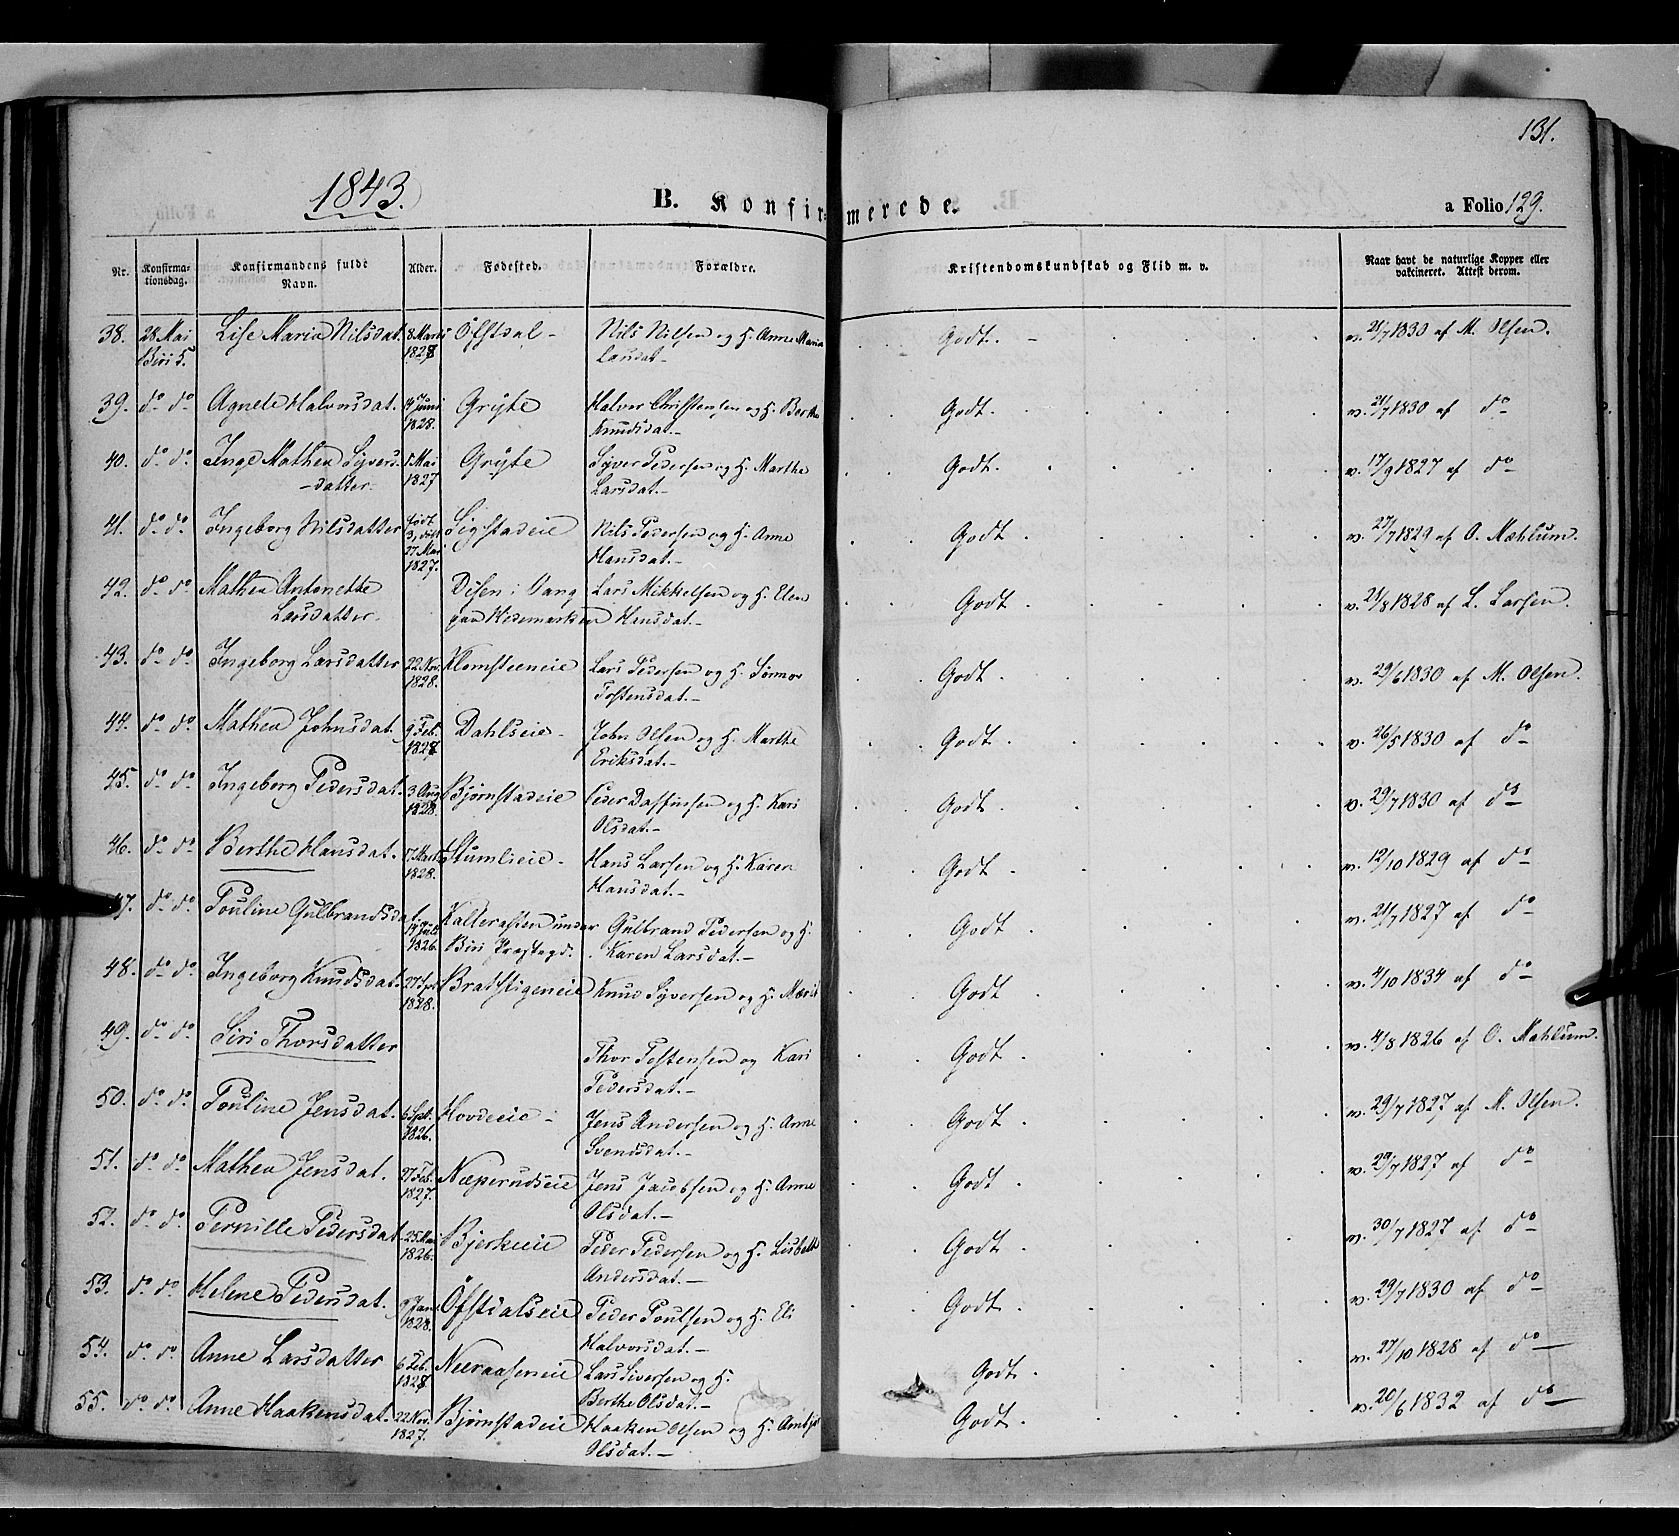 131.
1843.
B. Konfirmerede.
a Folio 129.
Nr. Konfirmationsdag. Konfirmandens fulde Navn. Alder. Fødested. Forældre. Kristendomskundskab og Flid m. v. Naar havt de naturlige Kopper eller vakcineret. Attest derom.
38. 28 Mai Lise Maria Nilsdat. 8 Marts 1828 Öfstdal - Nils Nilsen og H. Anne Maria Godt. v. 21/7 1830 af M. Olsen.
39. do do Agnete Halvorsdat. Juni 1828. Gryte Halvor Christensen og H. Berthe Knudsdat. Godt. v. 21/7 1830 af do
40. do do Inge Mathea Syversdatter. Mai 1827 Gryte Syver Pedersen og H. Marthe Larsdat. Godt. v. 17/9 1827 af do
41. do do Ingeborg Nilsdatter født 27 Mai 1827. Sigstadeie Nils Pedersen og H. Anne Hansdat. Godt. v. 27/7 1829 af O. Mæhlum.
42. do do Mathea Antonette Larsdatter. Disen i Vang paa Hedemarken Lars Mikkelsen og H. Elen Hansdat. Godt. v. 21/8 1828 af L. Larsen.
43. do do Ingeborg Larsdatter 22 Nov. 1828. Klomsteeneie Lars Pedersen og H. Tostensdat. Godt. v. 29/6 1830 af M. Olsen.
44. do do Mathea Johnsdat. 9 Feb. 1828. Dahlseie - John Olsen og H. Marthe Eriksdat. Godt. v. 26/5 1830 af do
45. do do Ingeborg Pedersdat. 3 Aug 1828. Bjørnstadeie Peder Daffinsen og H. Kari Olsdat. Godt v. 29/7 1830 af do
46. do do Berthe Hansdat. 1828. Stumlieie - Hans Larsen og H. Karen Hansdat. Godt. v. 12/10 1829 af do
47. do do Pouline Gulbrandsdat. Juli 1826. under Biri Præstegd. Gulbrand Pedersen og H. Karen Larsdat. Godt. v. 21/7 1827 af do
48. do do Ingeborg Knudsdat. 27 1828. Bratstigeneie Knud Syversen og H. Marit Godt. v. 4/10 1834 af do
49. do do Siri Thorsdatter Thor Tostensen og Kari Pedersdat. Godt. v. 4/8 1826 af O. Mæhlum.
50. do do Pouline Jensdat. 1826. Hovdeeie - Jens Andersen og H. Anne Svendsdat. Godt. v. 29/7 1827 af M. Olsen.
51. do do Mathea Jensdat. 27 Feb. 1827. Næperudseie Jens Jacobsen og H. Anne Olsdat. Godt. v. 29/7 1827 af do
52. do do Pernille Pedersdat. 25 Mai 1826. Bjerkeeie Peder Pedersen og H. Lisbeth Andersdat. Godt. v. 30/7 1827 af do
53. do do Helene Pedersdat. 9 Jan. 1828. Öfstdalseie Peder Poulsen og H. Eli Halvorsdat. Godt. v. 29/7 1830 af do
54. do do Anne Larsdatter 6 Feb. 1828 Neeraaseneie Lars Siversen og H. Berthe Olsdat. Godt. v. 27/10 1828 af do
55. do do Anne Haakensdat. 22 Nov. 1827. Bjørnstadeie Haaken Olsen og H. Olsdat. Godt. v. 20/6 1832 af do